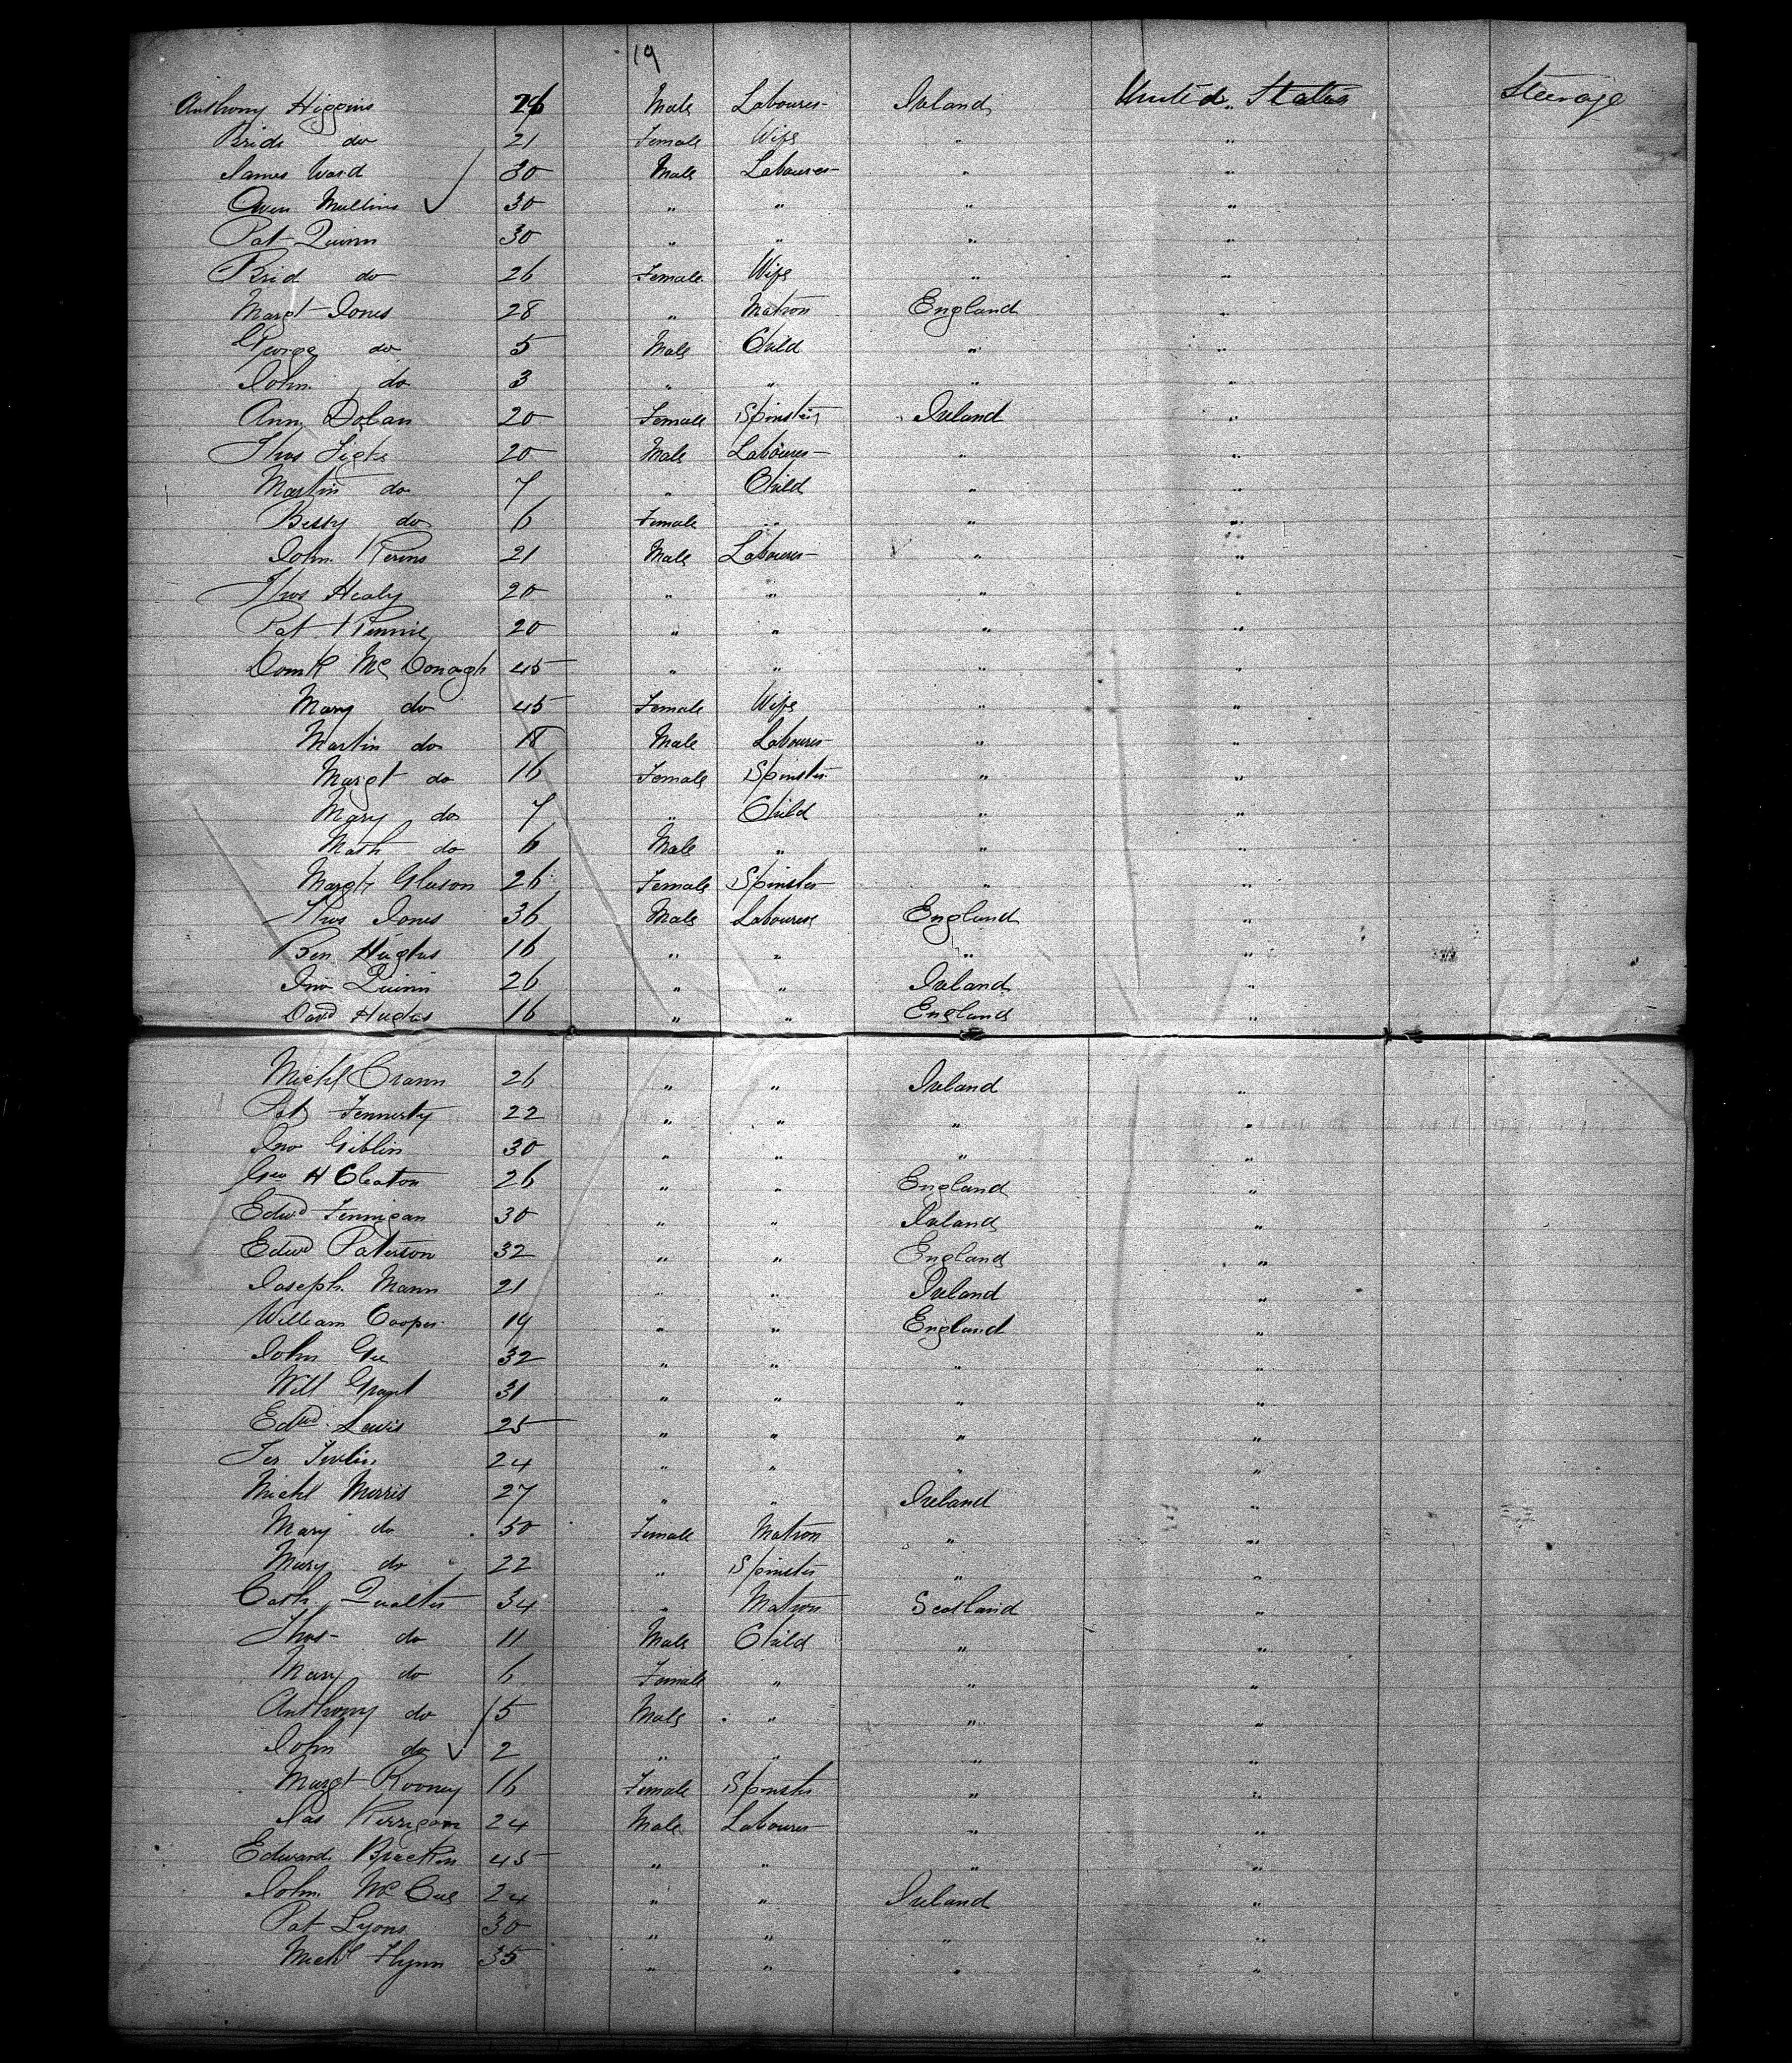 19
Anthony Higgins 26 Male Labourer Ireland United States Steerage
Bride do 21 Female Wife " "
James Ward 30 Male Labourer " "
Owen Mullins 30 " " " "
Pat Quinn 30 " " " "
Brid do 26 Female Wife " "
Margt Jones 28 " Matron England "
George do 5 Male Child " "
John do 3 " " " "
Ann Dolan 20 Female Spinster Ireland "
Thos 20 Male Labourer " "
Martin do 7 " Child " "
Bessy do 6 Female " " "
John Kerins 21 Male Labourer " "
Thos Healy 20 " " " "
Pat 20 " " " "
Domk McDonagh 45 " " " "
Mary do 45 Female Wife " "
Martin do 18 Male Labourer " "
Margt do 16 Female Spinster " "
Mary do 7 " Child " "
Math do 6 Male " " "
Margt Gleeson 26 Female Spinster " "
Thos Jones 36 Male Labourer England "
Ben Hughes 16 " " " "
Jno Quinn 26 " " Ireland "
Davd Hughes 16 " " England "
Michl Crann 26 " " Ireland "
Pat Fennerty 22 " " " "
Jno Giblin 30 " " " "
Geo H Cleaton 26 " " England "
Edwd Fennigan 30 " " Ireland "
Edwd Paterson 32 " " England "
Joseph Mann 21 " " Ireland "
William Cooper 19 " " England "
John Gee 32 " " " "
Will Grant 31 " " " "
Edwd Lewis 25 " " " "
24 " " " "
Michl Morris 27 " " Ireland "
Mary do 50 Female Matron " "
Mary do 22 " Spinster " "
Cath Qualter 34 " Matron Scotland "
Thos do 11 Male Child " "
Mary do 6 Female " " "
Anthony do 5 Male " " "
John do 2 " " " "
Margt Rooney 16 Female Spinster " "
Jas Kerrigan 24 Male Labourer " "
Edward Bracken 45 " " " "
John McCue 24 " " Ireland "
Pat Lyons 30 " " " "
Michl Flynn 35 " " " "